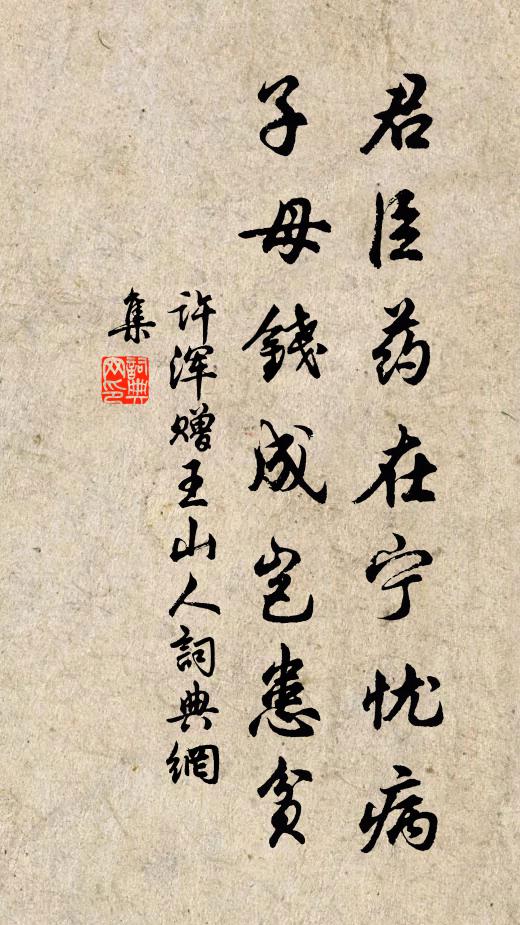 君臣药在宁忧病
子母錢成岂患贫
许浑赠王山人詞典網
集
詞典
网印